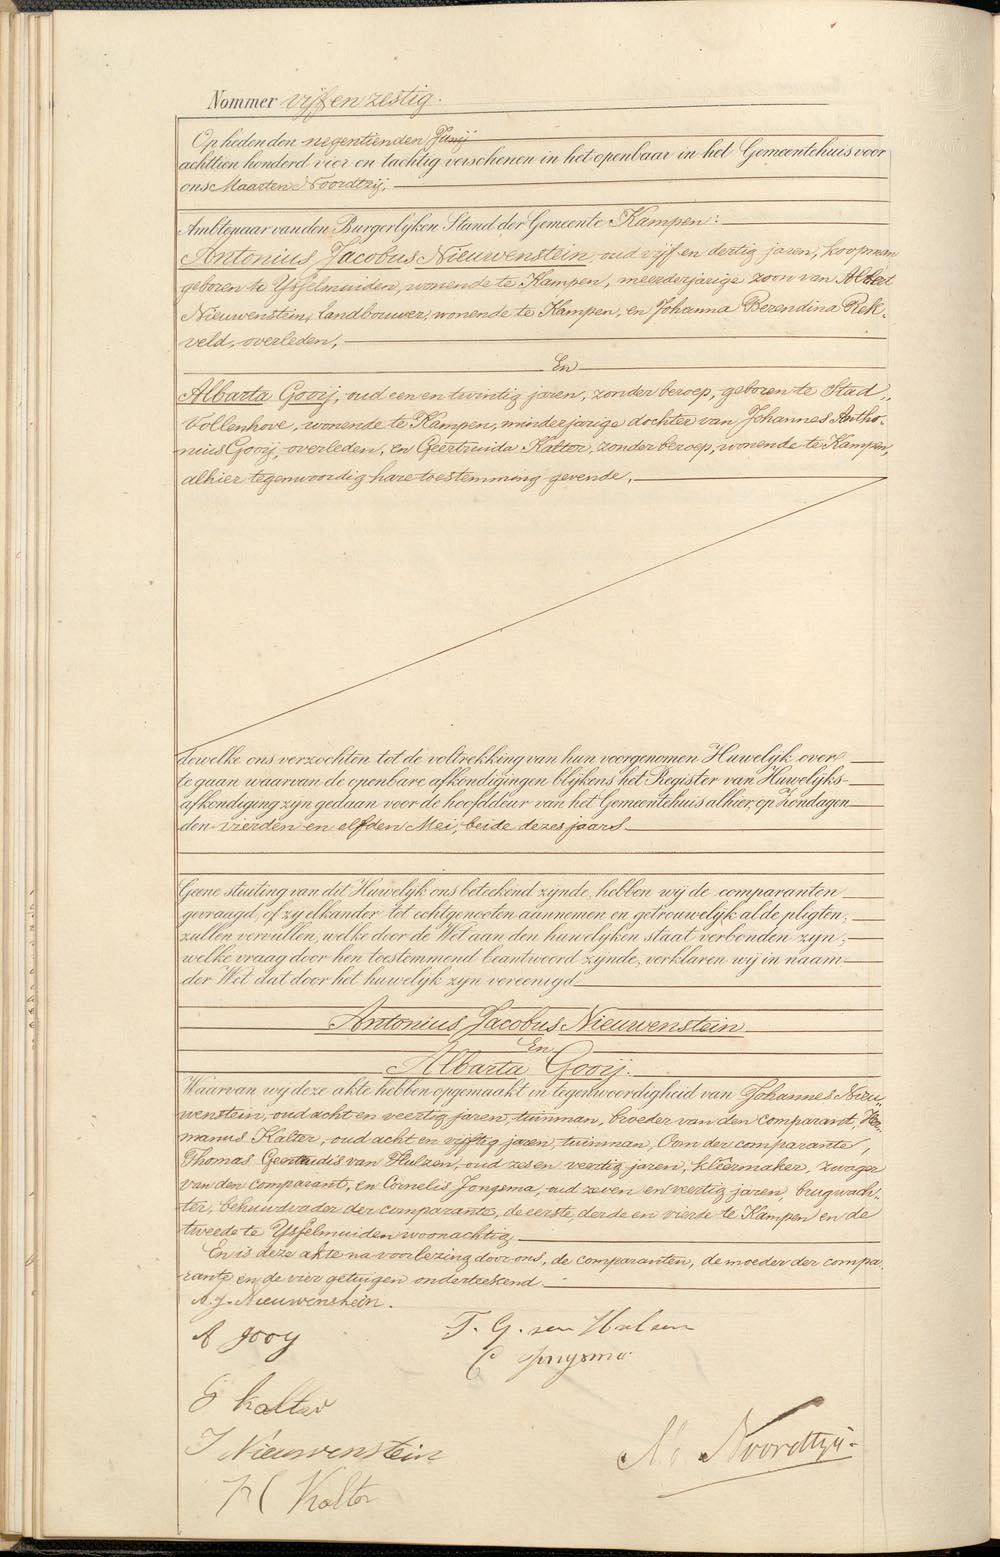 Nommer vijf en zestig.
Op heden den negentienden Junij
achttien honderd vier en tachtig verschenen in het openbaar in het Gemeentehuis voor
ons Maarten Noordtzij,
Ambtenaar van den Burgerlijken Stand der Gemeente Kampen:
Antonius Jacobus Nieuwenstein, oud vijf en dertig jaren, koopman
geboren te IJsselmuiden, wonende te Kampen, meerderjarige zoon van Albert
Nieuwenstein, landbouwer, wonende te Kampen, en Johanna Berendina Rek-
veld, overleden,
En
Albarta Gooij, oud een en twintig jaren, zonder beroep, geboren te Stad
Vollenhove, wonende te Kampen, minderjarige dochter van Johannes Antho-
nius Gooij, overleden, en Geertruida Kalter, zonder beroep, wonende te Kampen,
alhier tegenwoordig hare toestemming gevende,
dewelke ons verzochten tot de voltrekking van hun voorgenomen Huwelijk over
te gaan waarvan de openbare afkondigingen blijkens het Register van Huwelijks-
afkondiging zijn gedaan voor de hoofddeur van het Gemeentehuis alhier, op Zondagen
den vierden en elfden Mei, beide dezes jaars
Geene stuiting van dit Huwelijk ons beteekend zijnde, hebben wij de comparanten
gevraagd, of zij elkander tot echtgenooten aannemen en getrouwelijk al de pligten,
zullen vervullen, welke door de Wet aan den huwelijken staat verbonden zijn;
welke vraag door hen toestemmend beantwoord zijnde, verklaren wij in naam
der Wet dat door het huwelijk zijn vereenigd
Antonius Jacobus Nieuwenstein
En
Albarta Gooij.
Waarvan wij deze akte hebben opgemaakt in tegenwoordigheid van Johannes Nieu-
wenstein, oud acht en veertig jaren, tuinman, broeder van den comparant, Her-
manus Kalter, oud acht en vijftig jaren, tuinman, Oom der comparante,
Thomas Geertrudis van Hulzen, oud zes en veertig jaren, kleermaker, zwager
van den comparant, en Cornelis Jongsma, oud zeven en veertig jaren, brugwach-
ter, behuwdvader der comparante, de eerste, derde en vierde te Kampen en de
tweede te IJsselmuiden woonachtig
En is deze akte na voorlezing door ons, de comparanten, de moeder der compa-
rante en de vier getuigen onderteekend
A. J. Nieuwenstein.
A gooy
T. G. van Hulsen
C Jongsma
G Kalter
J Nieuwenstein
H Kalter
M. Noordtzij